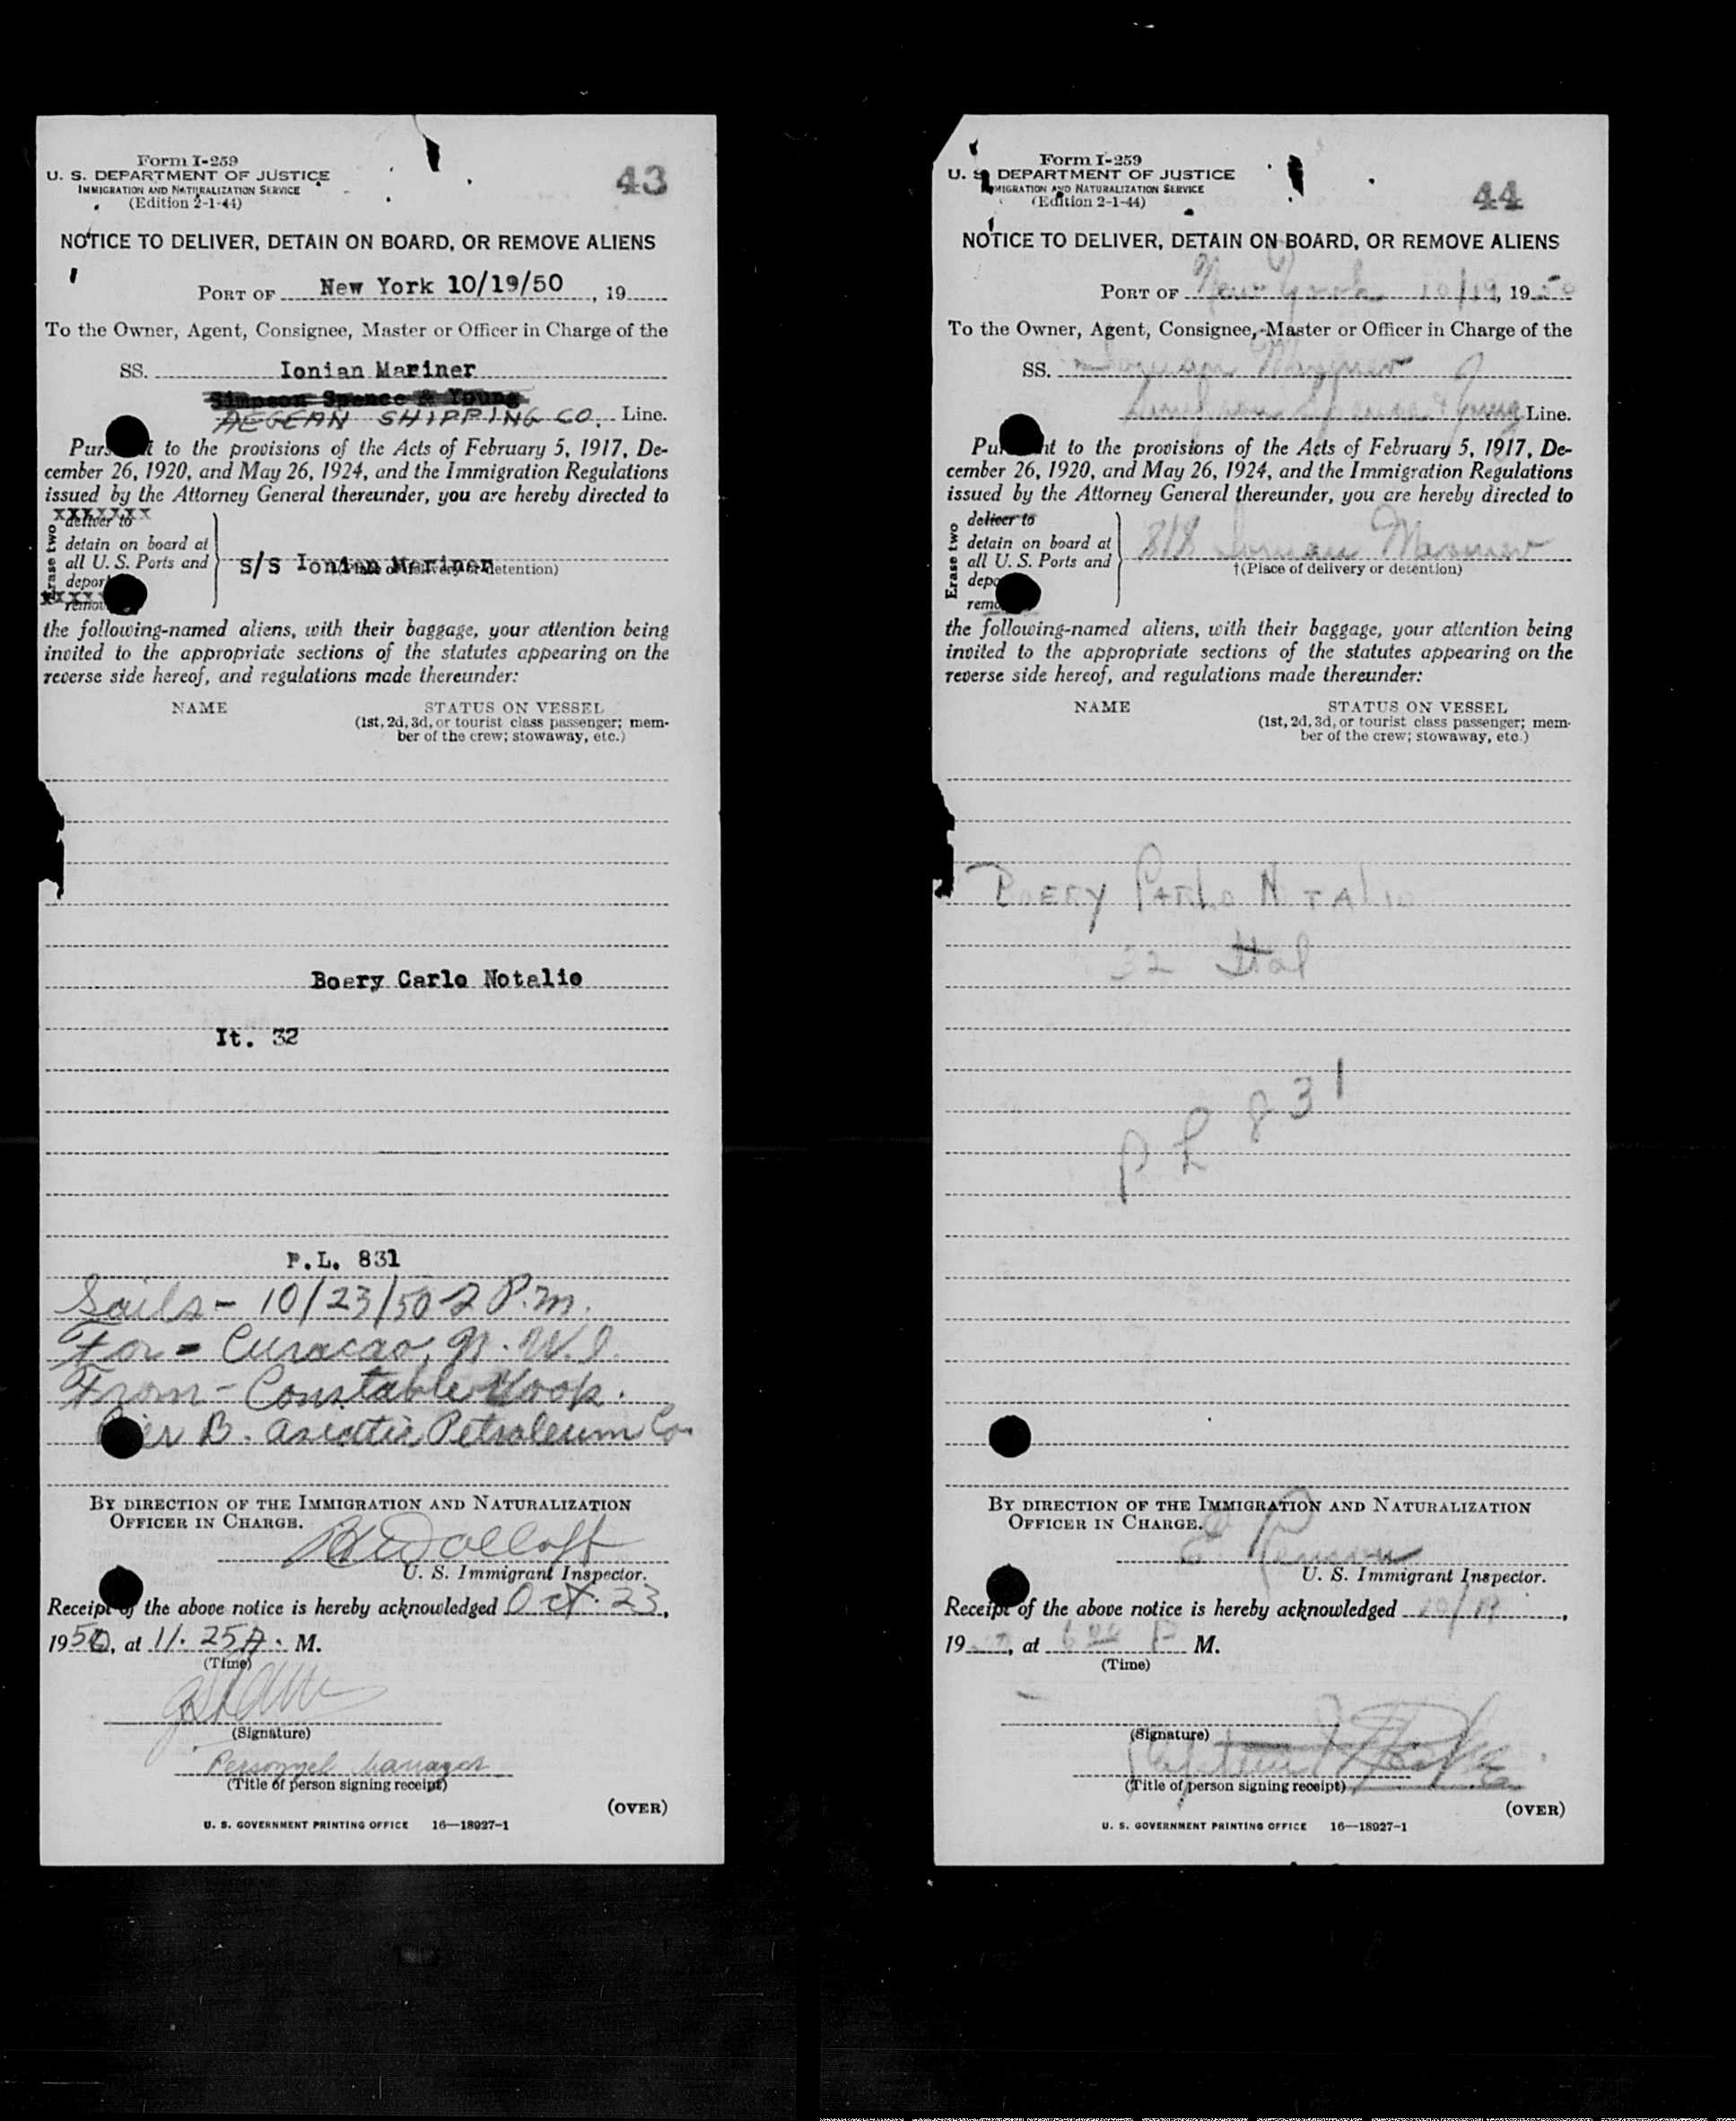 Form I-259
U. S. DEPARTMENT OF JUSTICE
IMMIGRATION AND NATURALIZATION SERVICE
(Edition 2-1-44)
43
NOTICE TO DELIVER, DETAIN ON BOARD, OR REMOVE ALIENS
PORT OF New York 10/19/50, 19
To the Owner, Agent, Consignee, Master or Officer in Charge of the
SS. Ionian Mariner
Simpson Spence & Young
AEGEAN SHIPPING CO. Line.
Pursuant to the provisions of the Acts of February 5, 1917, De-
cember 26, 1920, and May 26, 1924, and the Immigration Regulations
issued by the Attorney General thereunder, you are hereby directed to
Erase two
xxxxxxx
deliver to
detain on board at
all U. S. Ports and
deport
remove
S/S Ionian Mariner
(Place of delivery or detention)
the following-named aliens, with their baggage, your attention being
invited to the appropriate sections of the statutes appearing on the
reverse side hereof, and regulations made thereunder:
NAME STATUS ON VESSEL
(1st, 2d, 3d, or tourist class passenger; mem-
ber of the crew; stowaway, etc.)
Boery Carlo Notalio
It. 32
P.L. 831
Sails - 10/23/50 2 P.m.
For - Curacao, N.W.I.
From - Constable Hook.
Pier B. Asiatic Petroleum Co.
BY DIRECTION OF THE IMMIGRATION AND NATURALIZATION
OFFICER IN CHARGE.
U. S. Immigrant Inspector.
Receipt of the above notice is hereby acknowledged Oct. 23,
1950, at 11.25 A. M.
(Time)
(Signature)
Personnel Manager
(Title of person signing receipt)
(OVER)
U. S. GOVERNMENT PRINTING OFFICE 16—18927-1
Form I-259
U. S. DEPARTMENT OF JUSTICE
IMMIGRATION AND NATURALIZATION SERVICE
(Edition 2-1-44)
44
NOTICE TO DELIVER, DETAIN ON BOARD, OR REMOVE ALIENS
PORT OF New York 10/19, 1950
To the Owner, Agent, Consignee, Master or Officer in Charge of the
SS. Ionian Mariner
Simpson Spence & Young Line.
Pursuant to the provisions of the Acts of February 5, 1917, De-
cember 26, 1920, and May 26, 1924, and the Immigration Regulations
issued by the Attorney General thereunder, you are hereby directed to
Erase two
deliver to
detain on board at
all U. S. Ports and
deport
remove
S/S Ionian Mariner
†(Place of delivery or detention)
the following-named aliens, with their baggage, your attention being
invited to the appropriate sections of the statutes appearing on the
reverse side hereof, and regulations made thereunder:
NAME STATUS ON VESSEL
(1st, 2d, 3d, or tourist class passenger; mem-
ber of the crew; stowaway, etc.)
BOERY CARLO NOTALIO
32 Ital
P L 831
BY DIRECTION OF THE IMMIGRATION AND NATURALIZATION
OFFICER IN CHARGE.
U. S. Immigrant Inspector.
Receipt of the above notice is hereby acknowledged 10/19,
19, at 6 00 P M.
(Time)
(Signature)
Captain
(Title of person signing receipt)
(OVER)
U. S. GOVERNMENT PRINTING OFFICE 16—18927-1